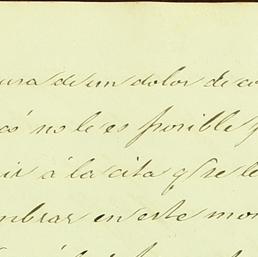 ura de un dolor de co
os no le es posible q
ir á la cita q.e se le
mbrar en este mom